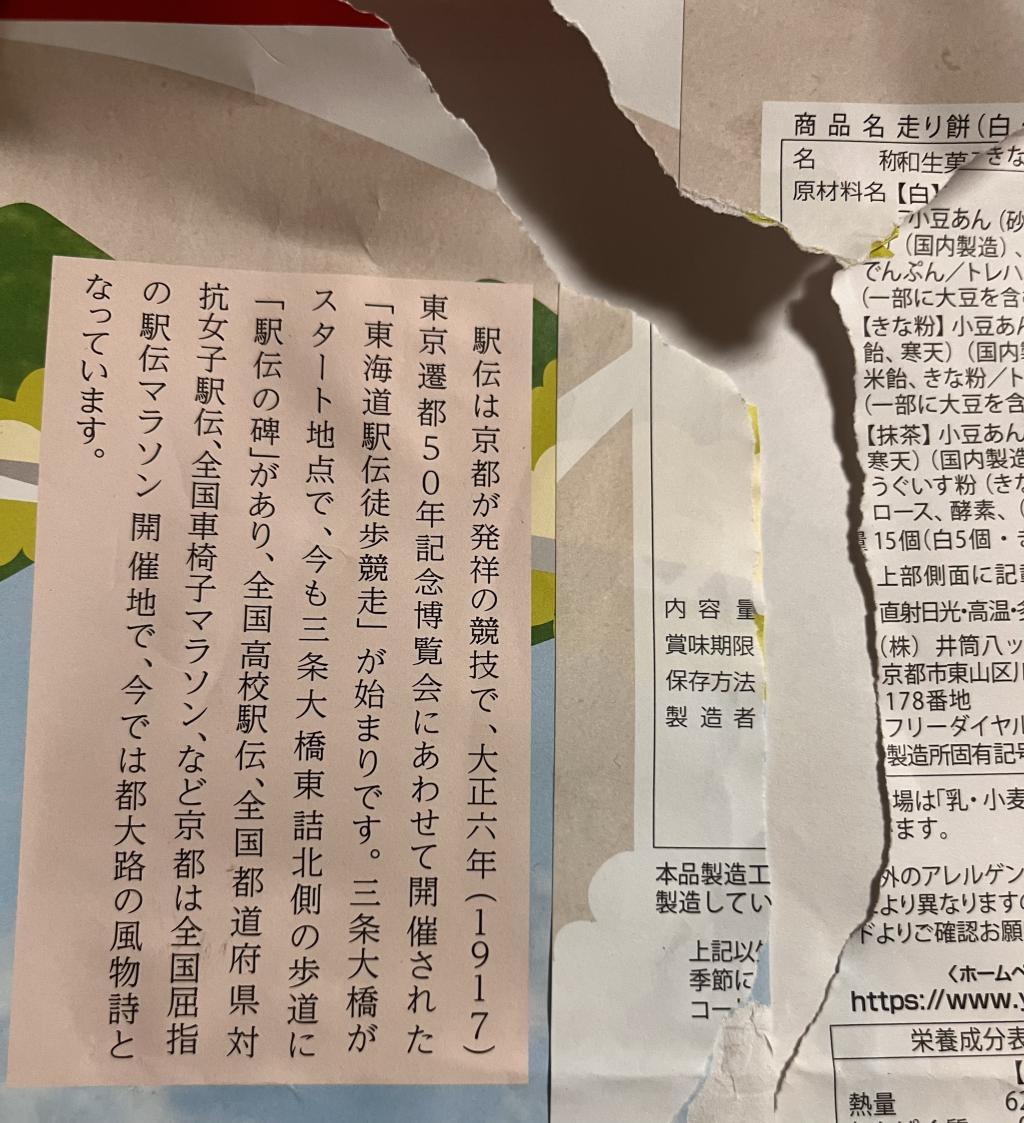 駅伝は京都が発祥の競技で、大正六年(1917)
東京遷都50年記念博覧会にあわせて開催された
「東海道駅伝徒歩競走」が始まりです。三条大橋が
スタート地点で、今も三条大橋東詰北側の歩道に
「駅伝の碑」があり、全国高校駅伝、全国都道府県対
抗女子駅伝、全国車椅子マラソン、など京都は全国屈指
の駅伝マラソン開催地で、今では都大路の風物詩と
なっています。
商品名 走り餅(白・
名称 和生菓
きな
原材料名【白】
小豆あん(砂
(国内製造)、
でんぷん/トレハ
(一部に大豆を含
【きな粉】小豆あん
飴、寒天)(国内
米飴、きな粉/ト
(一部に大豆を含
【抹茶】小豆あん
寒天)(国内製造
うぐいす粉(きな
ロース、酵素、(
内容量 15個(白5個・き
賞味期限 上部側面に記載
保存方法 直射日光・高温・多
製造者 (株)井筒八ッ
京都市東山区川
178番地
フリーダイヤル
製造所固有記号
本品製造工場は「乳・小麦
製造しています。
上記以外のアレルゲン
季節により異なりますの
コードよりご確認お願
〈ホームペ
https://www.y
栄養成分表
【
熱量 62